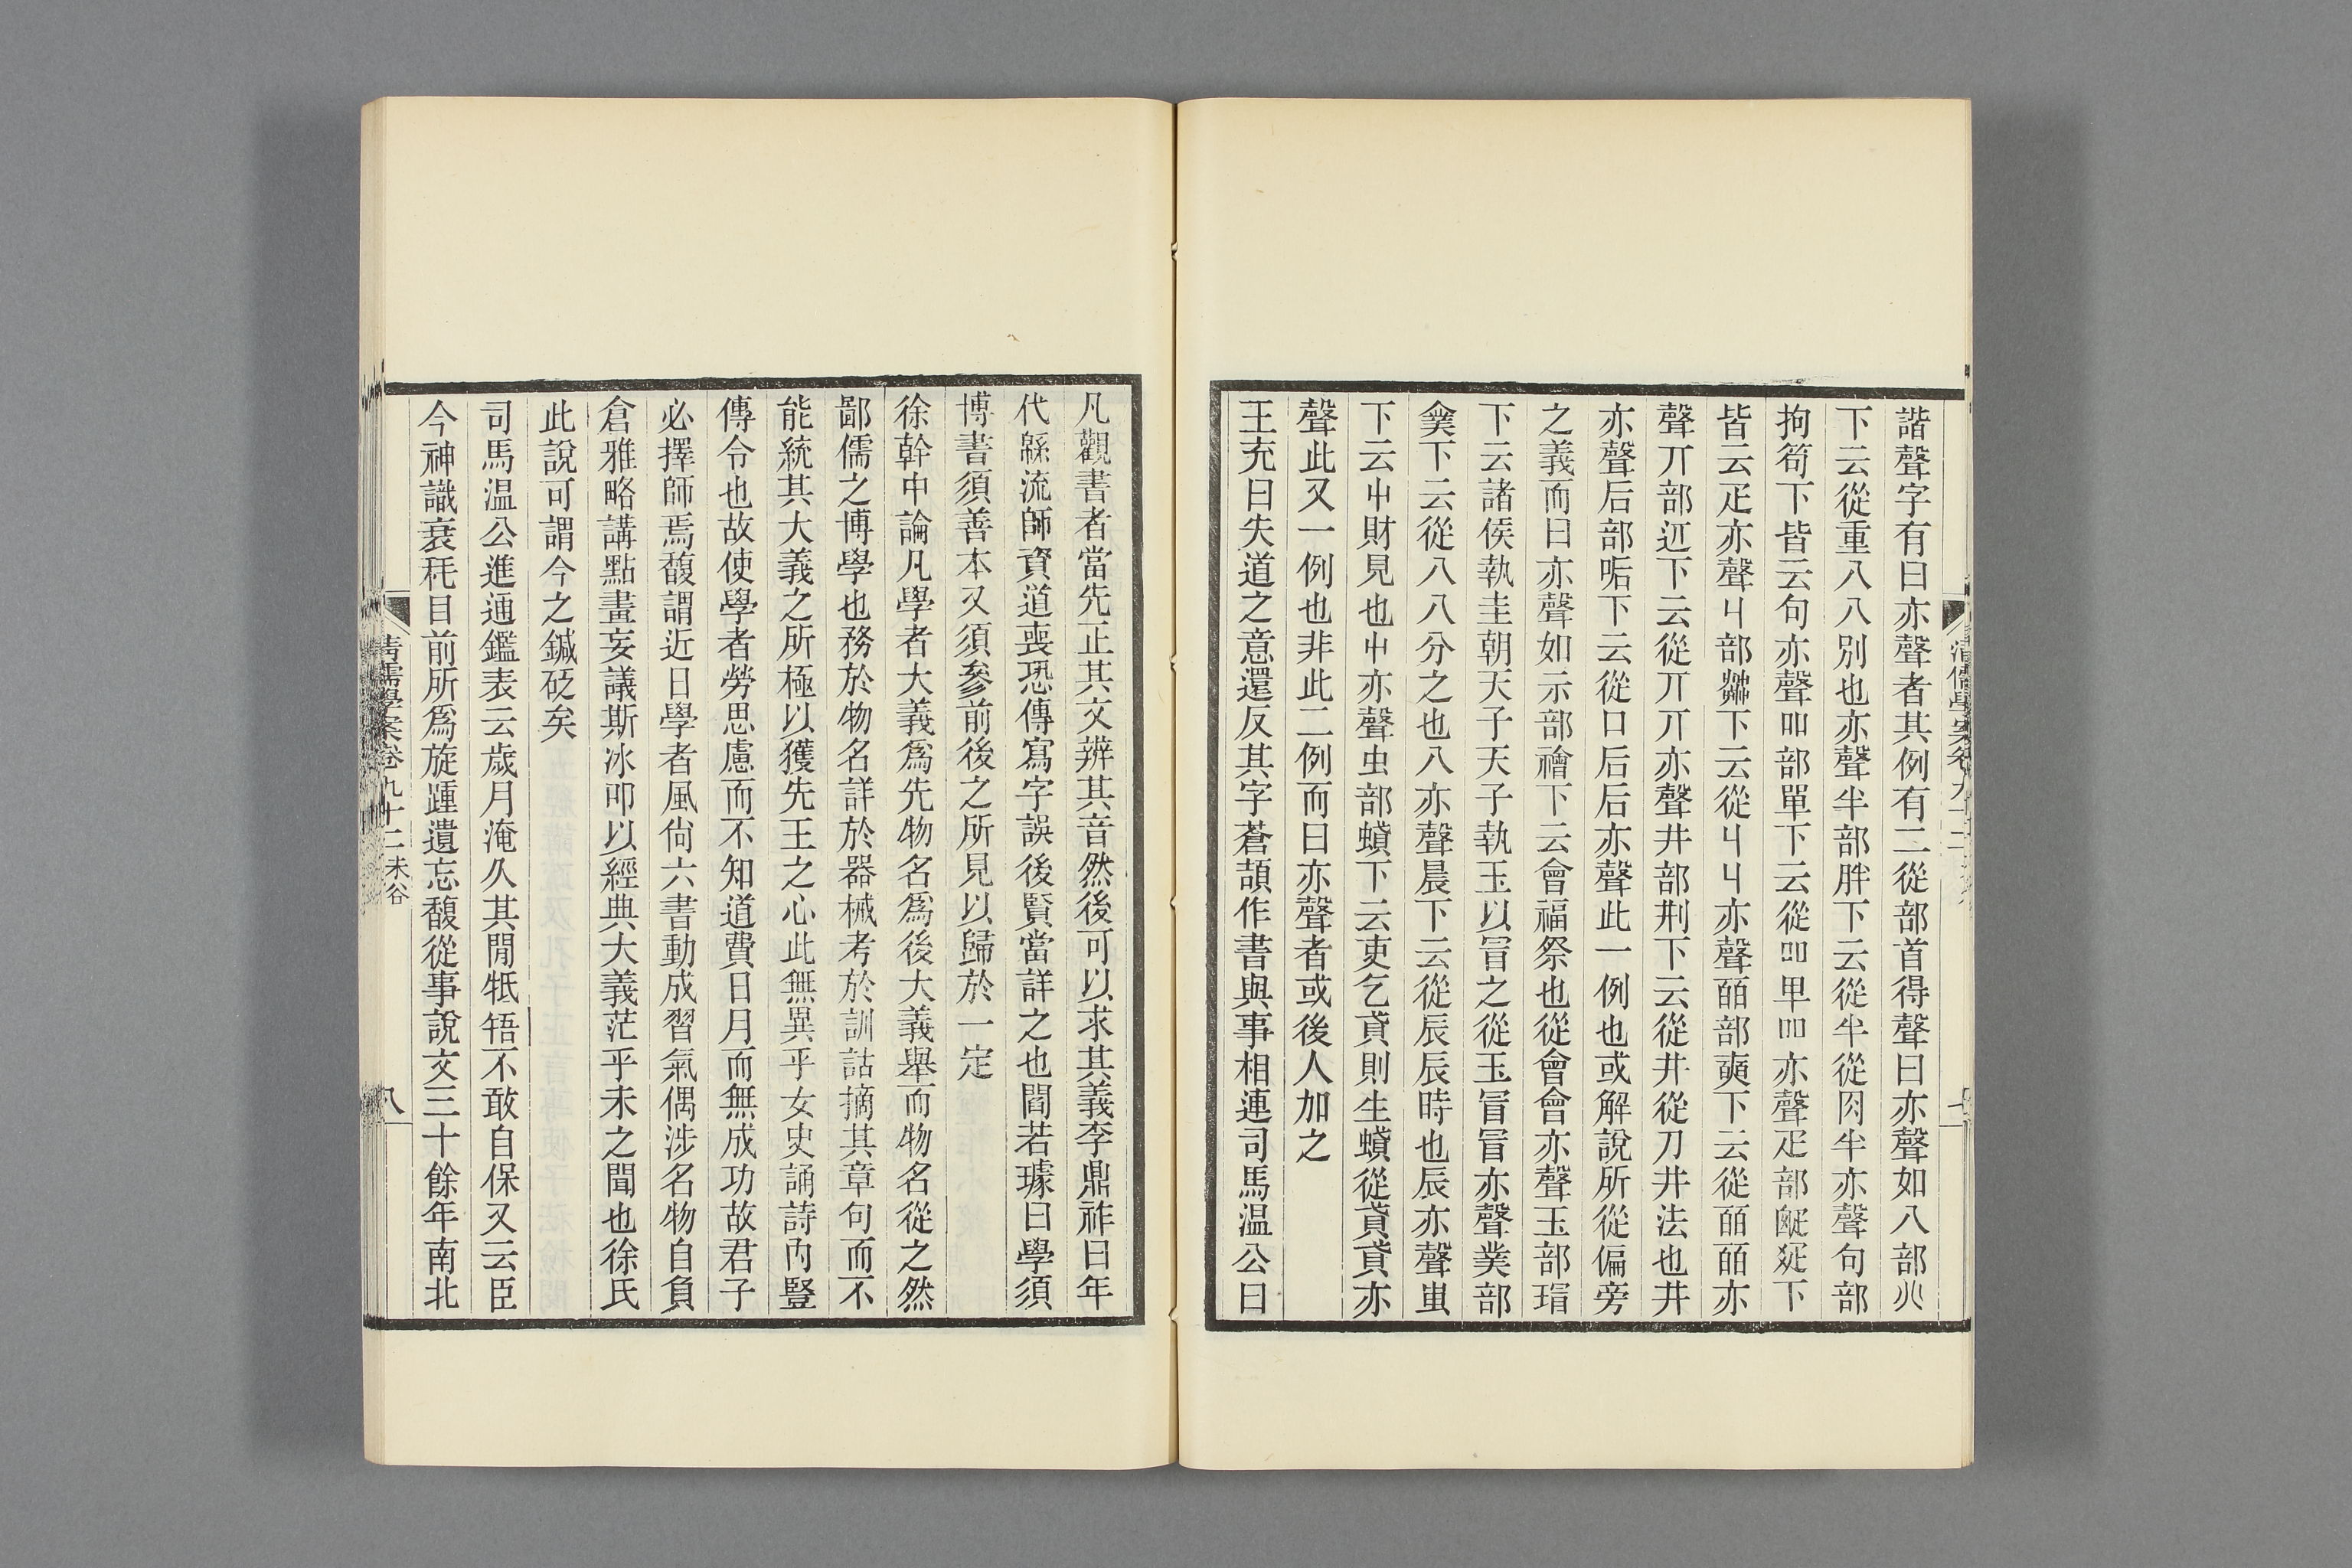 諧聲字有曰亦聲者其例有二從部首得聲曰亦聲如八部𠔁
下云從重八八別也亦聲半部胖下云從半從肉半亦聲句部
拘笱下皆云句亦聲吅部單下云從吅𠦒吅亦聲疋部𤴙䟽下
皆云疋亦聲丩部𦫶下云從丩丩亦聲皕部奭下云從皕皕亦
聲丌部𨒋下云從丌丌亦聲井部㓝下云從井從刀井法也井
亦聲后部㖃下云從口后后亦聲此一例也或解說所從偏旁
之義而曰亦聲如示部禬下云會福祭也從會會亦聲玉部瑁
下云諸侯執圭朝天子天子執玉以冒之從玉冒冒亦聲菐部
㒒下云從八八分之也八亦聲晨下云從辰辰時也辰亦聲䖝
下云屮財見也屮亦聲虫部蟘下云吏乞貣則生蟘從貣貣亦
聲此又一例也非此二例而曰亦聲者或後人加之
王充曰失道之意還反其字蒼頡作書與事相連司馬温公曰
凡觀書者當先正其文辨其音然後可以求其義李鼎祚曰年
代緜流師資道喪恐傳寫字誤後賢當詳之也閻若璩曰學須
博書須善本又須參前後之所見以歸於一定
徐幹中論凡學者大義爲先物名爲後大義舉而物名從之然
鄙儒之博學也務於物名詳於器械考於訓詁摘其章句而不
能統其大義之所極以獲先王之心此無異乎女史誦詩內豎
傳令也故使學者勞思慮而不知道費日月而無成功故君子
必擇師焉馥謂近日學者風尙六書動成習氣偶涉名物自負
倉雅略講點畫妄議斯冰叩以經典大義茫乎未之聞也徐氏
此說可謂今之鍼砭矣
司馬温公進通鑑表云歲月淹久其閒牴牾不敢自保又云臣
今神識衰秏目前所爲旋踵遺忘馥從事說文三十餘年南北
清儒學案卷九十二 未谷
八